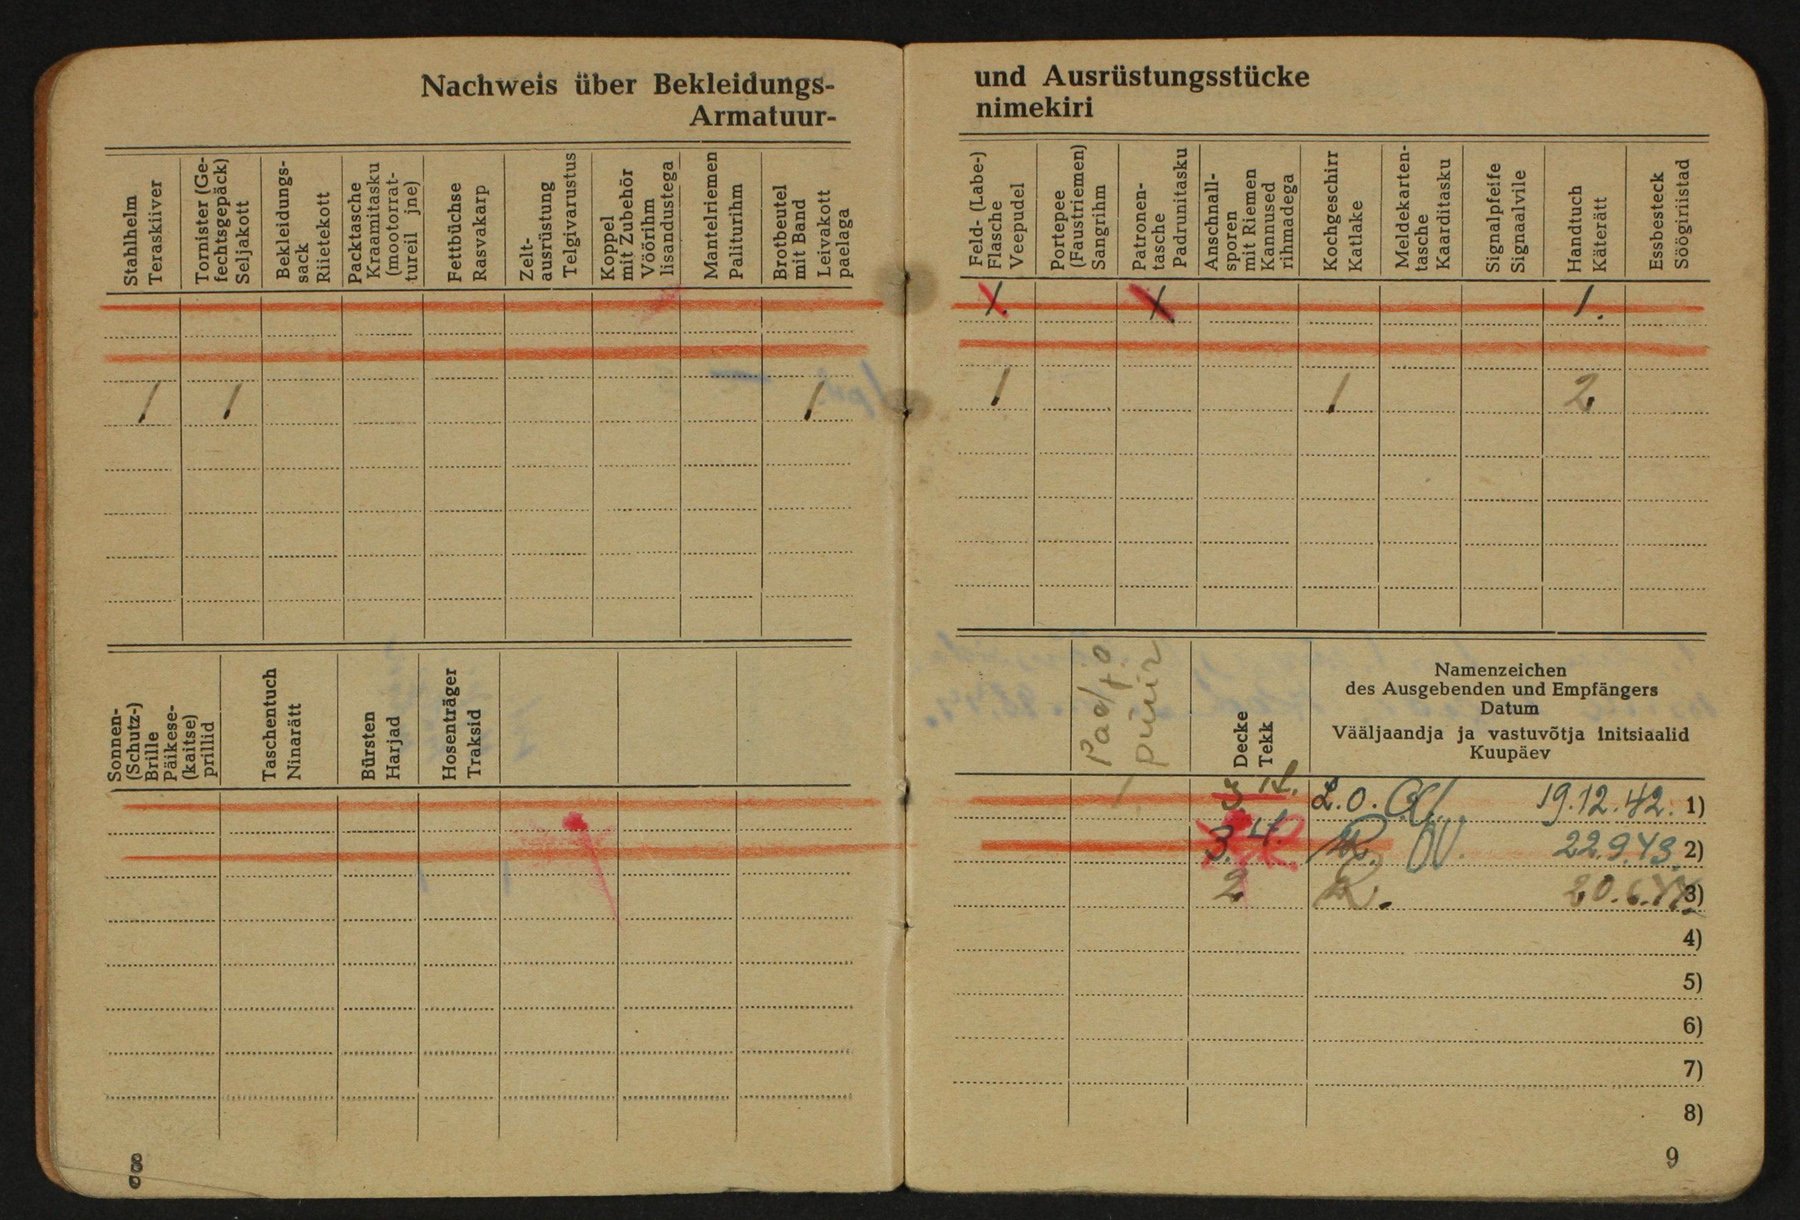 Nachweis über Bekleidungs-
Armatuur-
Stahlhelm
Teraskiiver
Tornister (Ge-
fechtsgepäck)
Seljakott
Bekleidungs-
sack
Riietekott
Packtasche
Kraamitasku
(mootorrat-
tureil jne)
Fettbüchse
Rasvakarp
Zelt-
ausrüstung
Telgivarustus
Koppel
mit Zubehör
Vöörihm
lisandustega
Mantelriemen
Paliturihm
Brotbeutel
mit Band
Leivakott
paelaga
1 1 1
Sonnen-
(Schutz-)
Brille
Päikese-
(kaitse)
prillid
Taschentuch
Ninarätt
Bürsten
Harjad
Hosenträger
Traksid
8
und Ausrüstungsstücke
nimekiri
Feld- (Labe-)
Flasche
Veepudel
Portepee
(Faustriemen)
Sangrihm
Patronen-
tasche
Padrunitasku
Anschnall-
sporen
mit Riemen
Kannused
rihmadega
Kochgeschirr
Katlake
Meldekarten-
tasche
Kaarditasku
Signalpfeife
Signaalvile
Handtuch
Käterätt
Essbesteck
Söögiriistad
1.
1 1 2
Decke
Tekk
Namenzeichen
des Ausgebenden und Empfängers
Datum
Vääljaandja ja vastuvõtja initsiaalid
Kuupäev
L.O. 19.12.42. 1)
3. 22.9.43 2)
2 R. 20.6.44 3)
4)
5)
6)
7)
8)
9